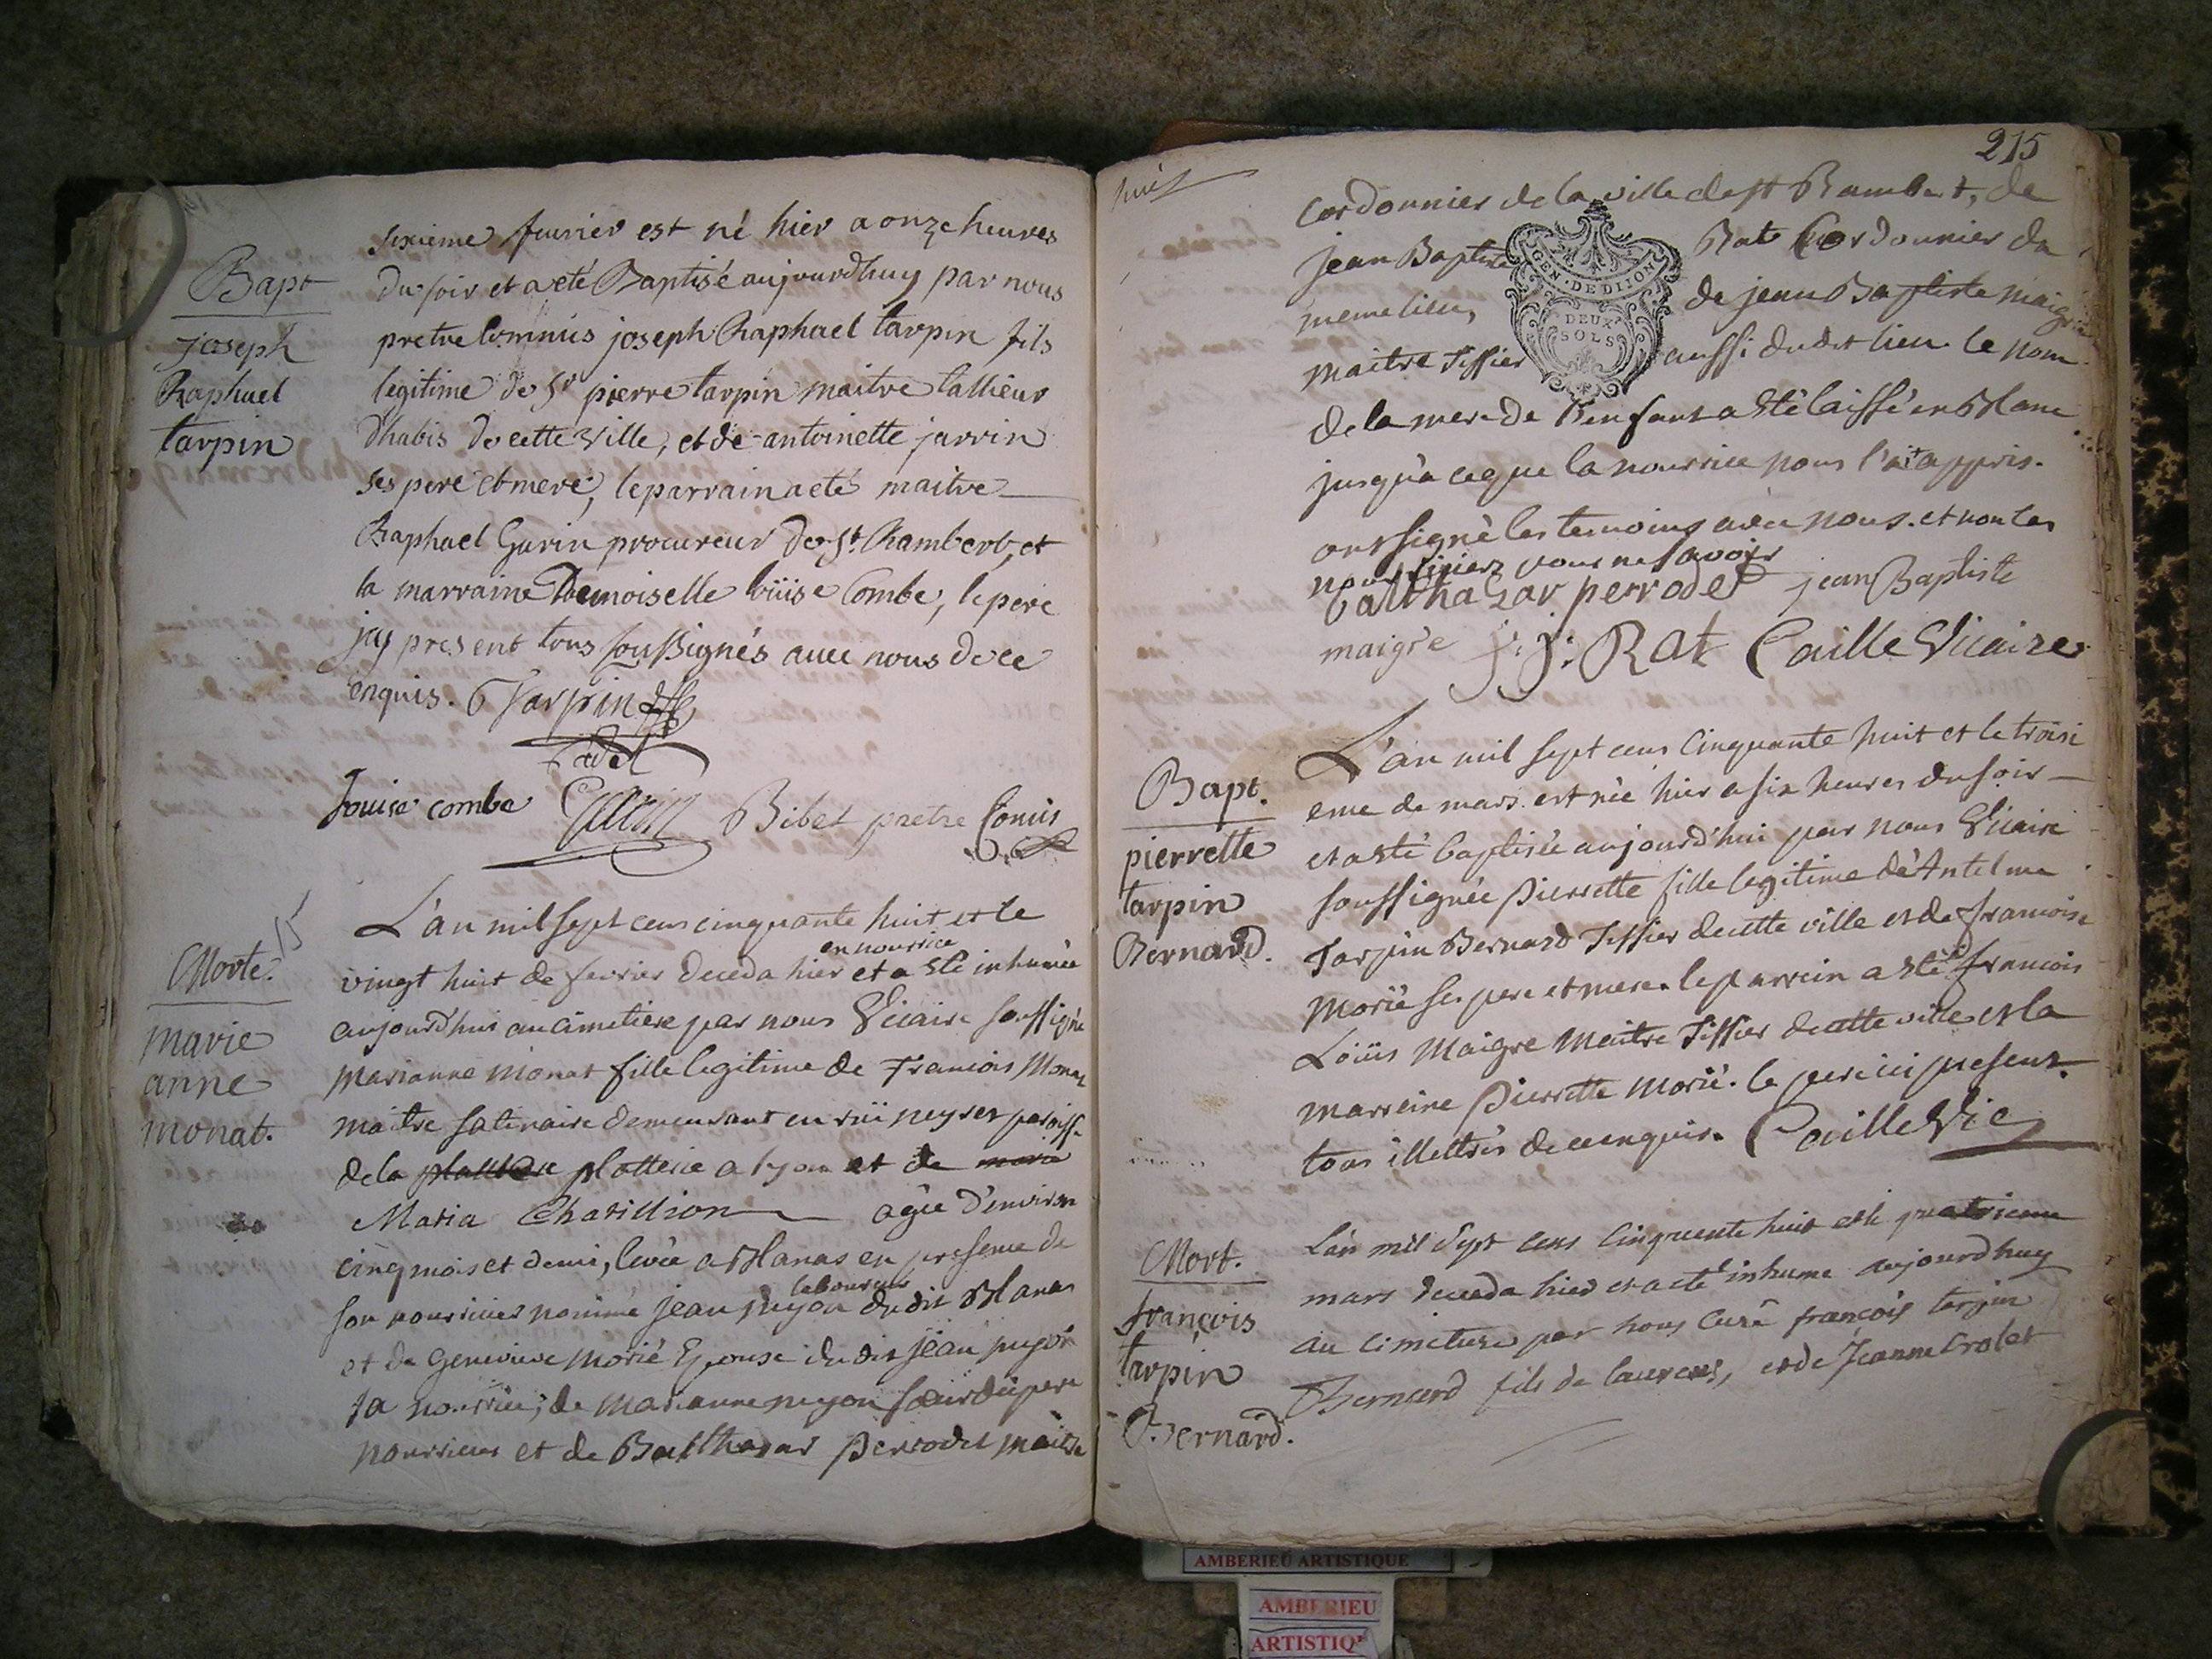 Bapt
joseph
Raphael
tarpin
sixieme fevrier est né hier a onze heures
du soir et a eté Baptisé aujourdhuy par nous
pretre Commis joseph Raphael tarpin fils
legitime de Sr pierre tarpin maitre tallieur
dhabis de cette ville, et de antoinette jarrin
ses pere et mere, le parrain a eté maitre
Raphael Garin procureur de St Rambert, et
la marraine Demoiselle loüise Combe, le pere
icy present tous soussignés avec nous de ce
enquis. Tarpin
Louise combe Garin Bibet pretre Comis
15
Morte.
marie
anne
monat.
L'an mil sept cens cinquante huit et le
en nourrice
vingt huit de fevrier deceda hier et a eté inhumée
aujourd'hui au cimetiere par nous Vicaire soussigné
marianne monat fille legitime de Francois Monat
maitre satinaire demeurant en rüe neyret paroisse
de la platterie a lyon et de
Maria Charillion agée d'environ
cinq mois et demi, levée a Blanas en presence de
laboureur
son nourricier nommé jean pugon dudit Blanas
et de Genevieve morié Epouse du dit jean pugon
sa nourrice, de marianne pugon soeur du pere
nourricier et de Balthazar perrodet maitre
215
cordonnier de la ville de st Rambert, de
jean Baptiste Rat Cordonnier du
meme lieu, de jean Baptiste maigre
maitre tissier aussi dudit lieu le nom
GEN. DE DIJON
DEUX
SOLS
de la mere de l'enfant a eté laissé en blanc
jusqu'a ce que la nourrice nous l'ait appris.
ont signé les temoins avec nous. et non les
nourriciers pour ne savoir
balthazar perrodet jean Baptiste
maigre j: j: Rat Caille Vicaire
Bapt.
pierrette
tarpin
Bernard.
L'an mil sept cens cinquante huit et le troisi
eme de mars est née hier a six heures du soir
et a eté baptisée aujourd'hui par nous Vicaire
soussignée Pierrette fille legitime de Antelme
Tarpin Bernard Tissier de cette ville et de francoise
Morié ses pere et mere. le parrein a eté francois
Loüis Maigre Maitre Tissier de cette ville et la
marreine Pierrette Morié. le pere ici present.
tous illettrés de ce enquis. Caille Vic
Mort.
françois
tarpin
Bernard.
L'an mil Sept cens Cinquente huit et le quatrieme
mars deceda hier et a eté inhume aujourdhuy
au cimetiere par nous Curé françois tarpin
Bernard fils de laurens, et de Jeanne Crolet
AMBERIEU ARTISTIQUE
AMBERIEU
ARTISTIQ